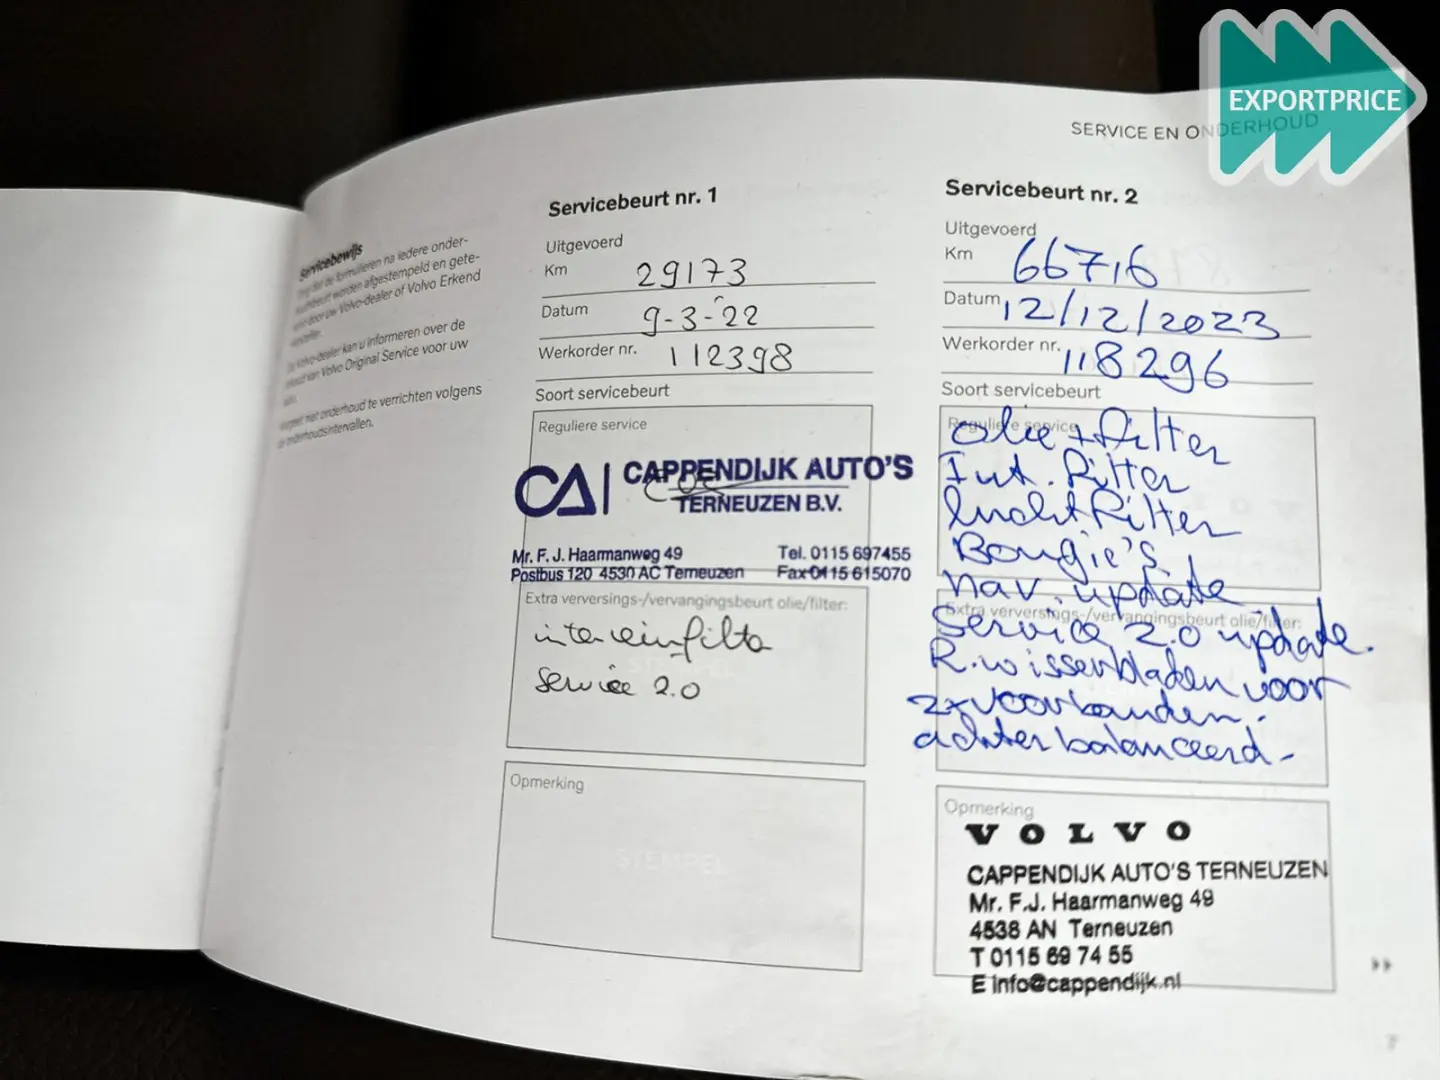 EXPORTPRICE
SERVICE EN ONDERHOUD
Servicebewijs
de formulieren na iedere onder-
worden afgestempeld en gete-
door uw Volvo-dealer of Volvo Erkend
Volvo-dealer kan u informeren over de
van Volvo Original Service voor uw
niet onderhoud te verrichten volgens
de onderhoudsintervallen.
Servicebeurt nr. 1
Uitgevoerd
Km 29173
Datum 9-3-'22
Werkorder nr. 112398
Soort servicebeurt
Reguliere service
CA CAPPENDIJK AUTO'S
TERNEUZEN B.V.
Mr. F. J. Haarmanweg 49 Tel. 0115 697455
Postbus 120 4530 AC Terneuzen Fax 0115 615070
Extra verversings-/vervangingsbeurt olie/filter:
Service 2.0
STEMPEL
Opmerking
STEMPEL
Servicebeurt nr. 2
Uitgevoerd
Km 66716
Datum 12/12/2023
Werkorder nr. 118296
Soort servicebeurt
Reguliere service
Olie + Filter
Int. Filter
luchtfilter
Bougie's
nav. update
Extra verversings-/vervangingsbeurt olie/filter:
Service 2.0 update.
R.wisserbladen voor
2x voorbanden.
achter balanceerd-
Opmerking
VOLVO
CAPPENDIJK AUTO'S TERNEUZEN
Mr. F.J. Haarmanweg 49
4538 AN Terneuzen
T 0115 69 74 55
E info@cappendijk.nl
7